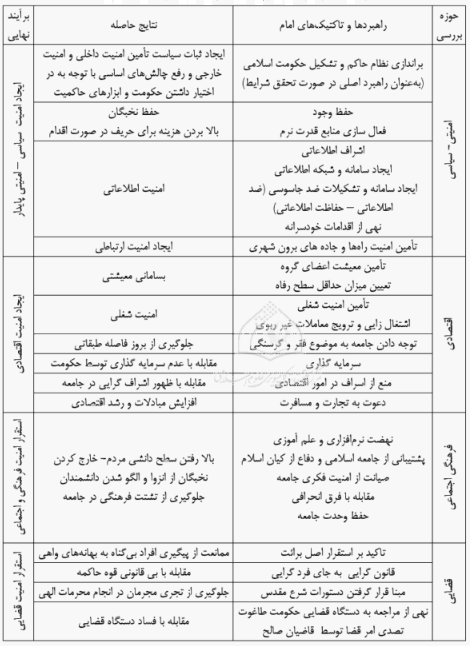 حوزه بررسی
راهبردها و تاکتیک‌های امام
نتایج حاصله
برآیند نهایی
امنیتی - سیاسی
براندازی نظام حاکم و تشکیل حکومت اسلامی
(به‌عنوان راهبرد اصلی در صورت تحقق شرایط)
ایجاد ثبات سیاست تأمین امنیت داخلی و امنیت
خارجی و رفع چالش‌های اساسی با توجه به در
اختیار داشتن حکومت و ابزارهای حاکمیت
ایجاد امنیت سیاسی – امنیتی پایدار
حفظ وجود
فعال سازی منابع قدرت نرم
حفظ نخبگان
بالا بردن هزینه برای حریف در صورت اقدام
اشراف اطلاعاتی
ایجاد سامانه و شبکه اطلاعاتی
ایجاد سامانه و تشکیلات ضد جاسوسی (ضد
اطلاعاتی – حفاظت اطلاعاتی)
نهی از اقدامات خودسرانه
امنیت اطلاعاتی
تأمین امنیت راه‌ها و جاده های برون شهری
ایجاد امنیت ارتباطی
اقتصادی
تأمین معیشت اعضای گروه
تعیین میزان حداقل سطح رفاه
بسامانی معیشتی
ایجاد امنیت اقتصادی
تأمین امنیت شغلی
اشتغال زایی و ترویج معاملات غیر ربوی
امنیت شغلی
توجه دادن جامعه به موضوع فقر و گرسنگی
جلوگیری از بروز فاصله طبقاتی
سرمایه گذاری
مقابله با عدم سرمایه گذاری توسط حکومت
منع از اسراف در امور اقتصادی
مقابله با ظهور اشراف گرایی در جامعه
دعوت به تجارت و مسافرت
افزایش مبادلات و رشد اقتصادی
فرهنگی اجتماعی
نهضت نرم‌افزاری و علم آموزی
پشتیبانی از جامعه اسلامی و دفاع از کیان اسلام
صیانت از امنیت فکری جامعه
مقابله با فرق انحرافی
حفظ وحدت جامعه
بالا رفتن سطح دانشی مردم– خارج کردن
نخبگان از انزوا و الگو شدن دانشمندان
جلوگیری از تشتت فرهنگی در جامعه
استقرار امنیت فرهنگی و اجتماعی
قضایی
تاکید بر استقرار اصل برائت
ممانعت از پیگیری افراد بی‌گناه به بهانه‌های واهی
استقرار امنیت قضایی
قانون گرایی به جای فرد گرایی
مقابله با بی قانونی قوه حاکمه
مبنا قرار گرفتن دستورات شرع مقدس
جلوگیری از تجری مجرمان در انجام محرمات الهی
نهی از مراجعه به دستگاه قضایی حکومت طاغوت
تصدی امر قضا توسط قاضیان صالح
مقابله با فساد دستگاه قضایی